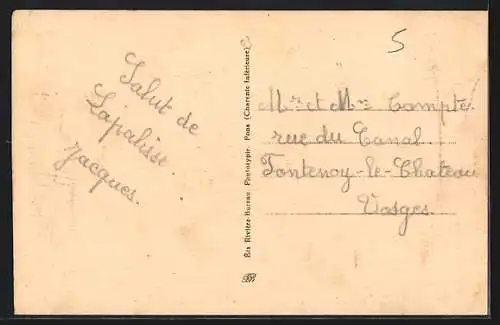 5
Salut de
Lapalisse
Jacques.
Éts Rivière-Bureau Phototypie, Pons (Charente Inférieure)
Mr et Mme Compte
rue du Canal
Fontenoy-le-Chateau
Vosges